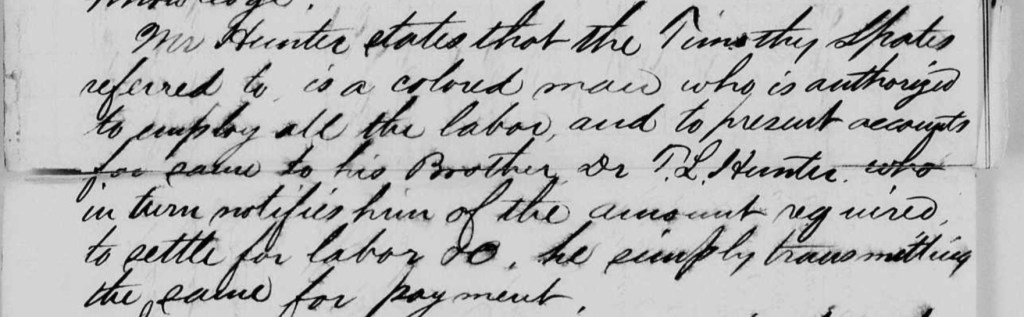 knowledge.
Mr Hunter states that the Timothy Spates
referred to is a colored man who is authorized
to employ all the labor, and to present accounts
for same to his Brother, Dr T. L. Hunter. who
in turn notifies him of the amount required,
to settle for labor &c. he simply transmitting
the same for payment.